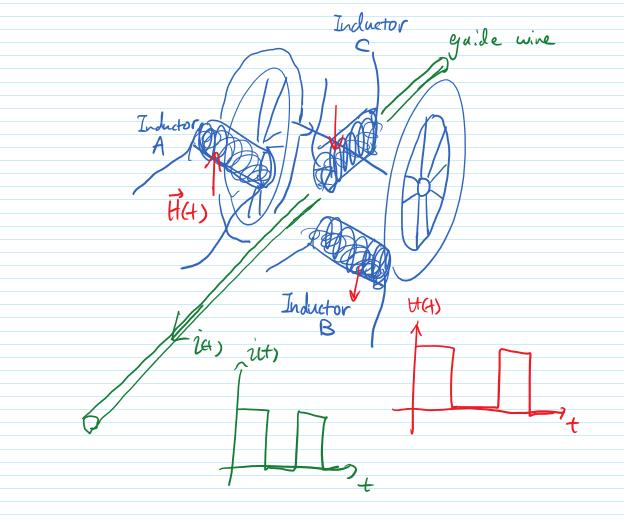 Inductor
C
guide wire
Inductor
A
H(t)
Inductor
B
i(t)
i(t)
t
H(t)
t